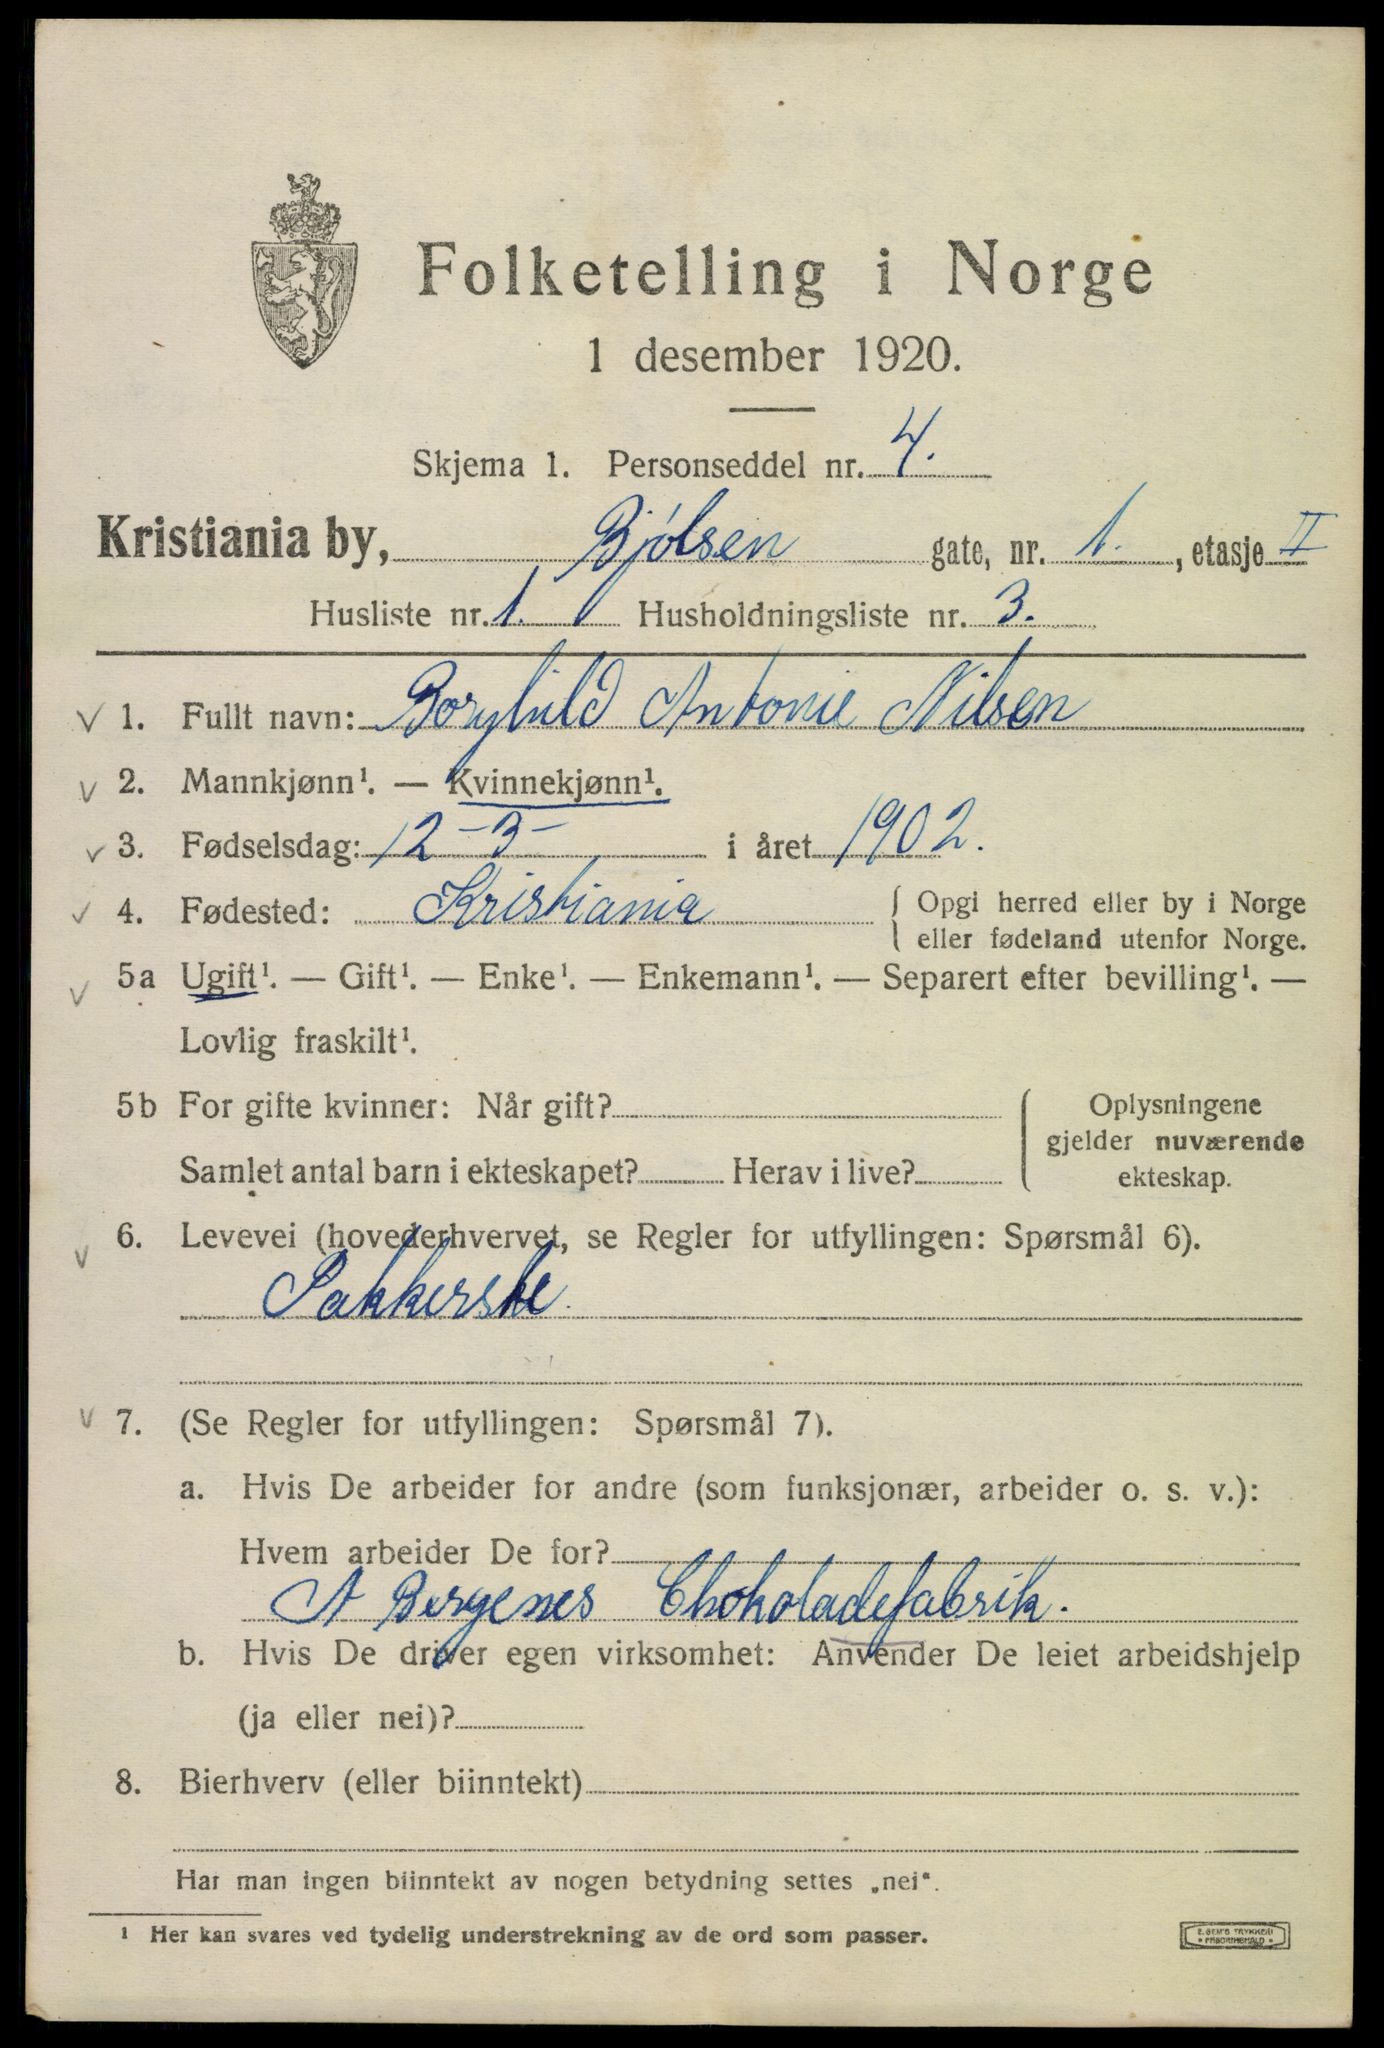 Folketelling i Norge
1 desember 1920.
Skjema 1. Personseddel nr. 4.
Kristiania by, Bjølsen gate, nr. 1. , etasje II
Husliste nr. 1. Husholdningsliste nr. 3.
1. Fullt navn: Borghild Antonie Nilsen
2. Mannkjønn¹. — Kvinnekjønn¹.
3. Fødselsdag: 12-3- i året 1902.
4. Fødested: Kristiania { Opgi herred eller by i Norge
eller fødeland utenfor Norge.
5a Ugift¹. — Gift¹. — Enke¹. — Enkemann¹. — Separert efter bevilling¹. —
Lovlig fraskilt¹.
5b For gifte kvinner: Når gift?
Samlet antal barn i ekteskapet? Herav i live?
{ Oplysningene
gjelder nuværende
ekteskap.
6. Levevei (hovederhvervet, se Regler for utfyllingen: Spørsmål 6).
Pakkerske.
7. (Se Regler for utfyllingen: Spørsmål 7).
a. Hvis De arbeider for andre (som funksjonær, arbeider o. s. v.):
Hvem arbeider De for?
A Bergenes Chokoladefabrik.
b. Hvis De driver egen virksomhet: Anvender De leiet arbeidshjelp
(ja eller nei)?
8. Bierhverv (eller biinntekt)
Har man ingen biinntekt av nogen betydning settes „nei“.
¹ Her kan svares ved tydelig understrekning av de ord som passer.